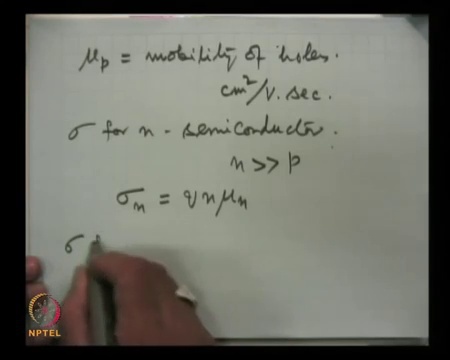 μp = mobility of holes.
cm²/V.sec.
σ for n - semiconductor.
n >> p
σn = q n μn
σ
NPTEL